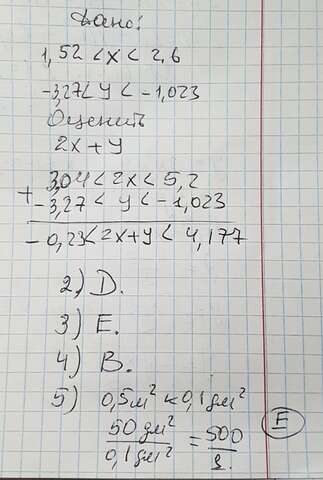 Дано:
1,52 < x < 2,6
-3,27 < y < -1,023
Оценить
2x + y
+ 3,04 < 2x < 5,2
-3,27 < y < -1,023
-0,23 < 2x + y < 4,177
2) D.
3) E.
4) B.
5) 0,5 м² к 0,1 дм²
50 дм² / 0,1 дм² = 500 / 1.
E